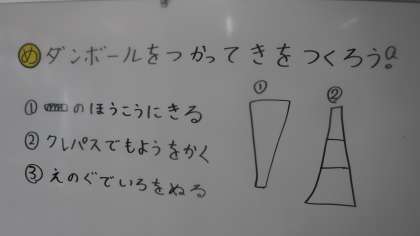 め ダンボールをつかってきをつくろう!
① のほうこうにきる
② クレパスでもようをかく
③ えのぐでいろをぬる
① ②